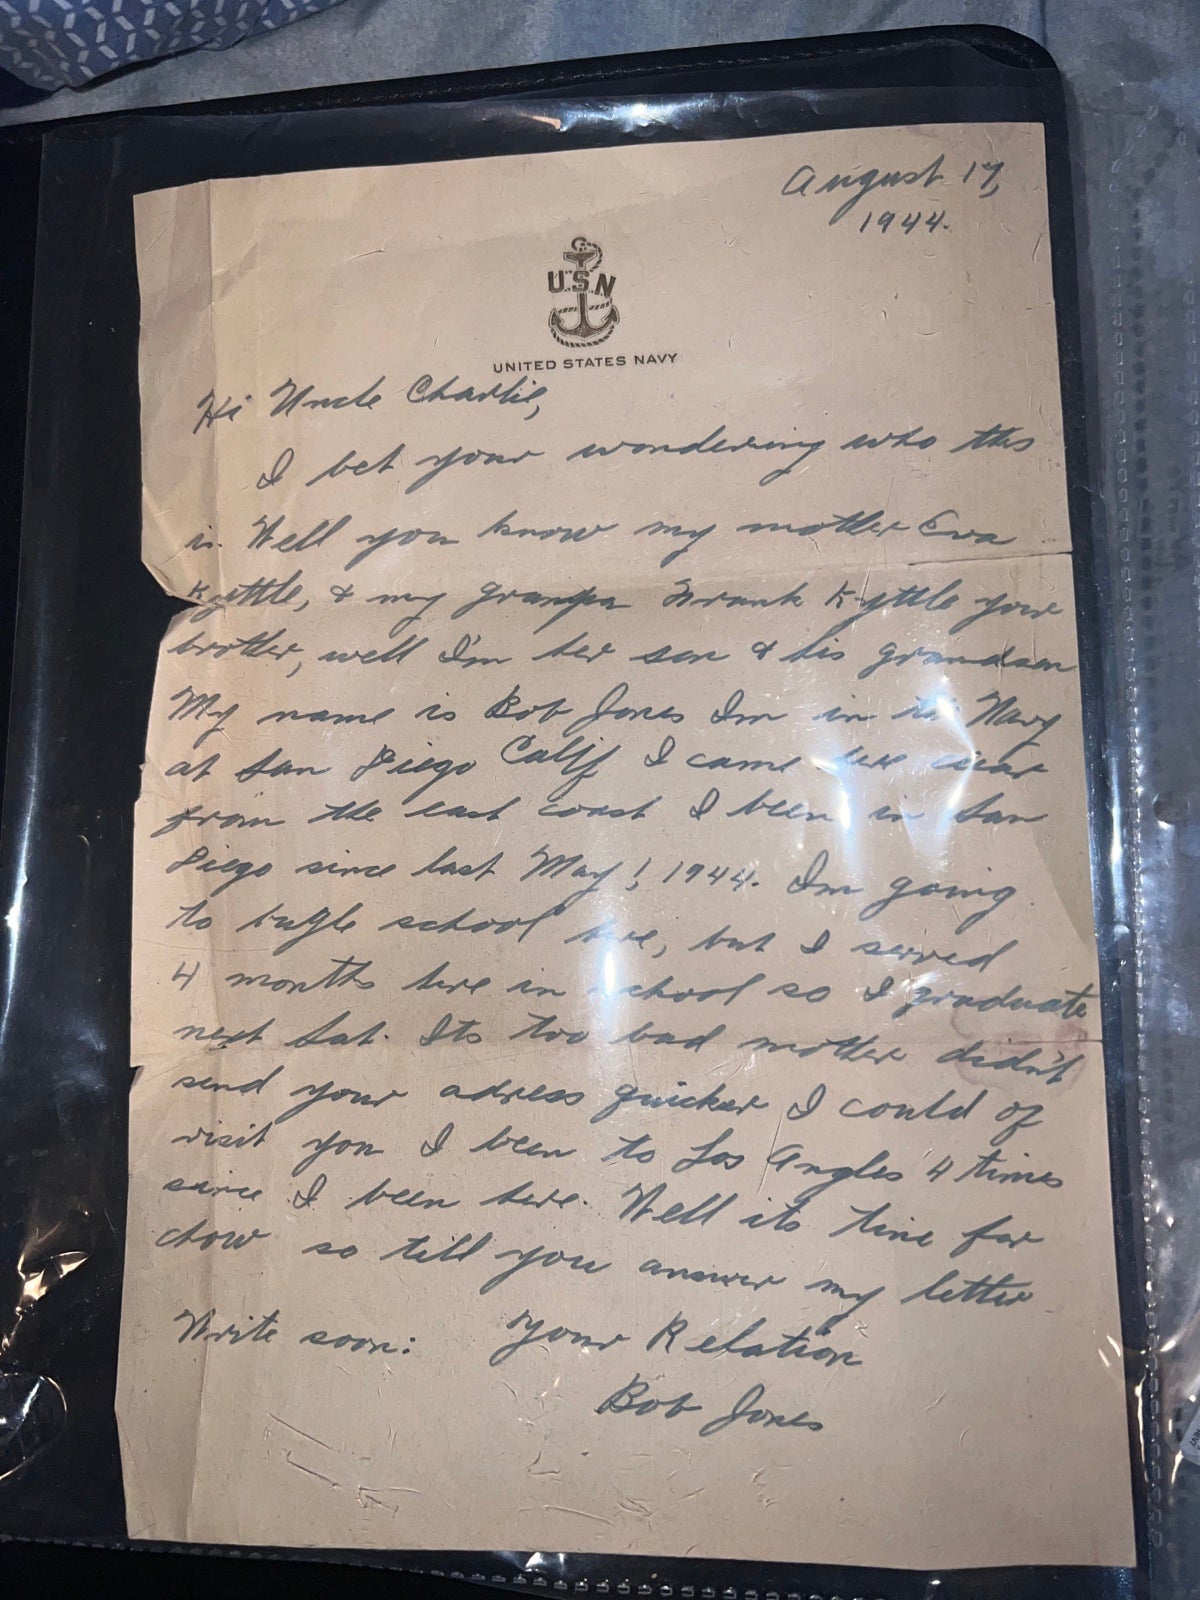 August 17,
1944.
U.S.N
UNITED STATES NAVY
Hi Uncle Charlie,
I bet your wondering who this
is. Well you know my mother Eva
Kyttle, & my grandpa Frank Kyttle your
brother, well I'm her son & his grandson
My name is Bob Jones Im in the Navy
at San Diego Calif I came here clear
from the east coast I been in San
Diego since last May 1, 1944. Im going
to bugle school here, but I served
4 months here in school so I graduate
next Sat. Its too bad mother didn't
send your adress quicker I could of
visit you I been to Los Angles 4 times
since I been here. Well its time for
chow so till you answer my letter
Write soon: Your Relation
Bob Jones